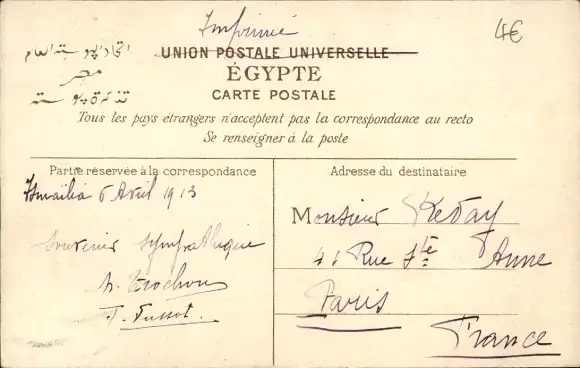 Imprimé
4€
اتحاد البوستة العام
UNION POSTALE UNIVERSELLE
مصر
ÉGYPTE
تذكرة بوستة
CARTE POSTALE
Tous les pays étrangers n'acceptent pas la correspondance au recto
Se renseigner à la poste
Partie réservée à la correspondance
Ismaïlia 6 Avril 1913
Souvenir sympathique
Adresse du destinataire
Monsieur
41 Rue Ste Anne
Paris
France